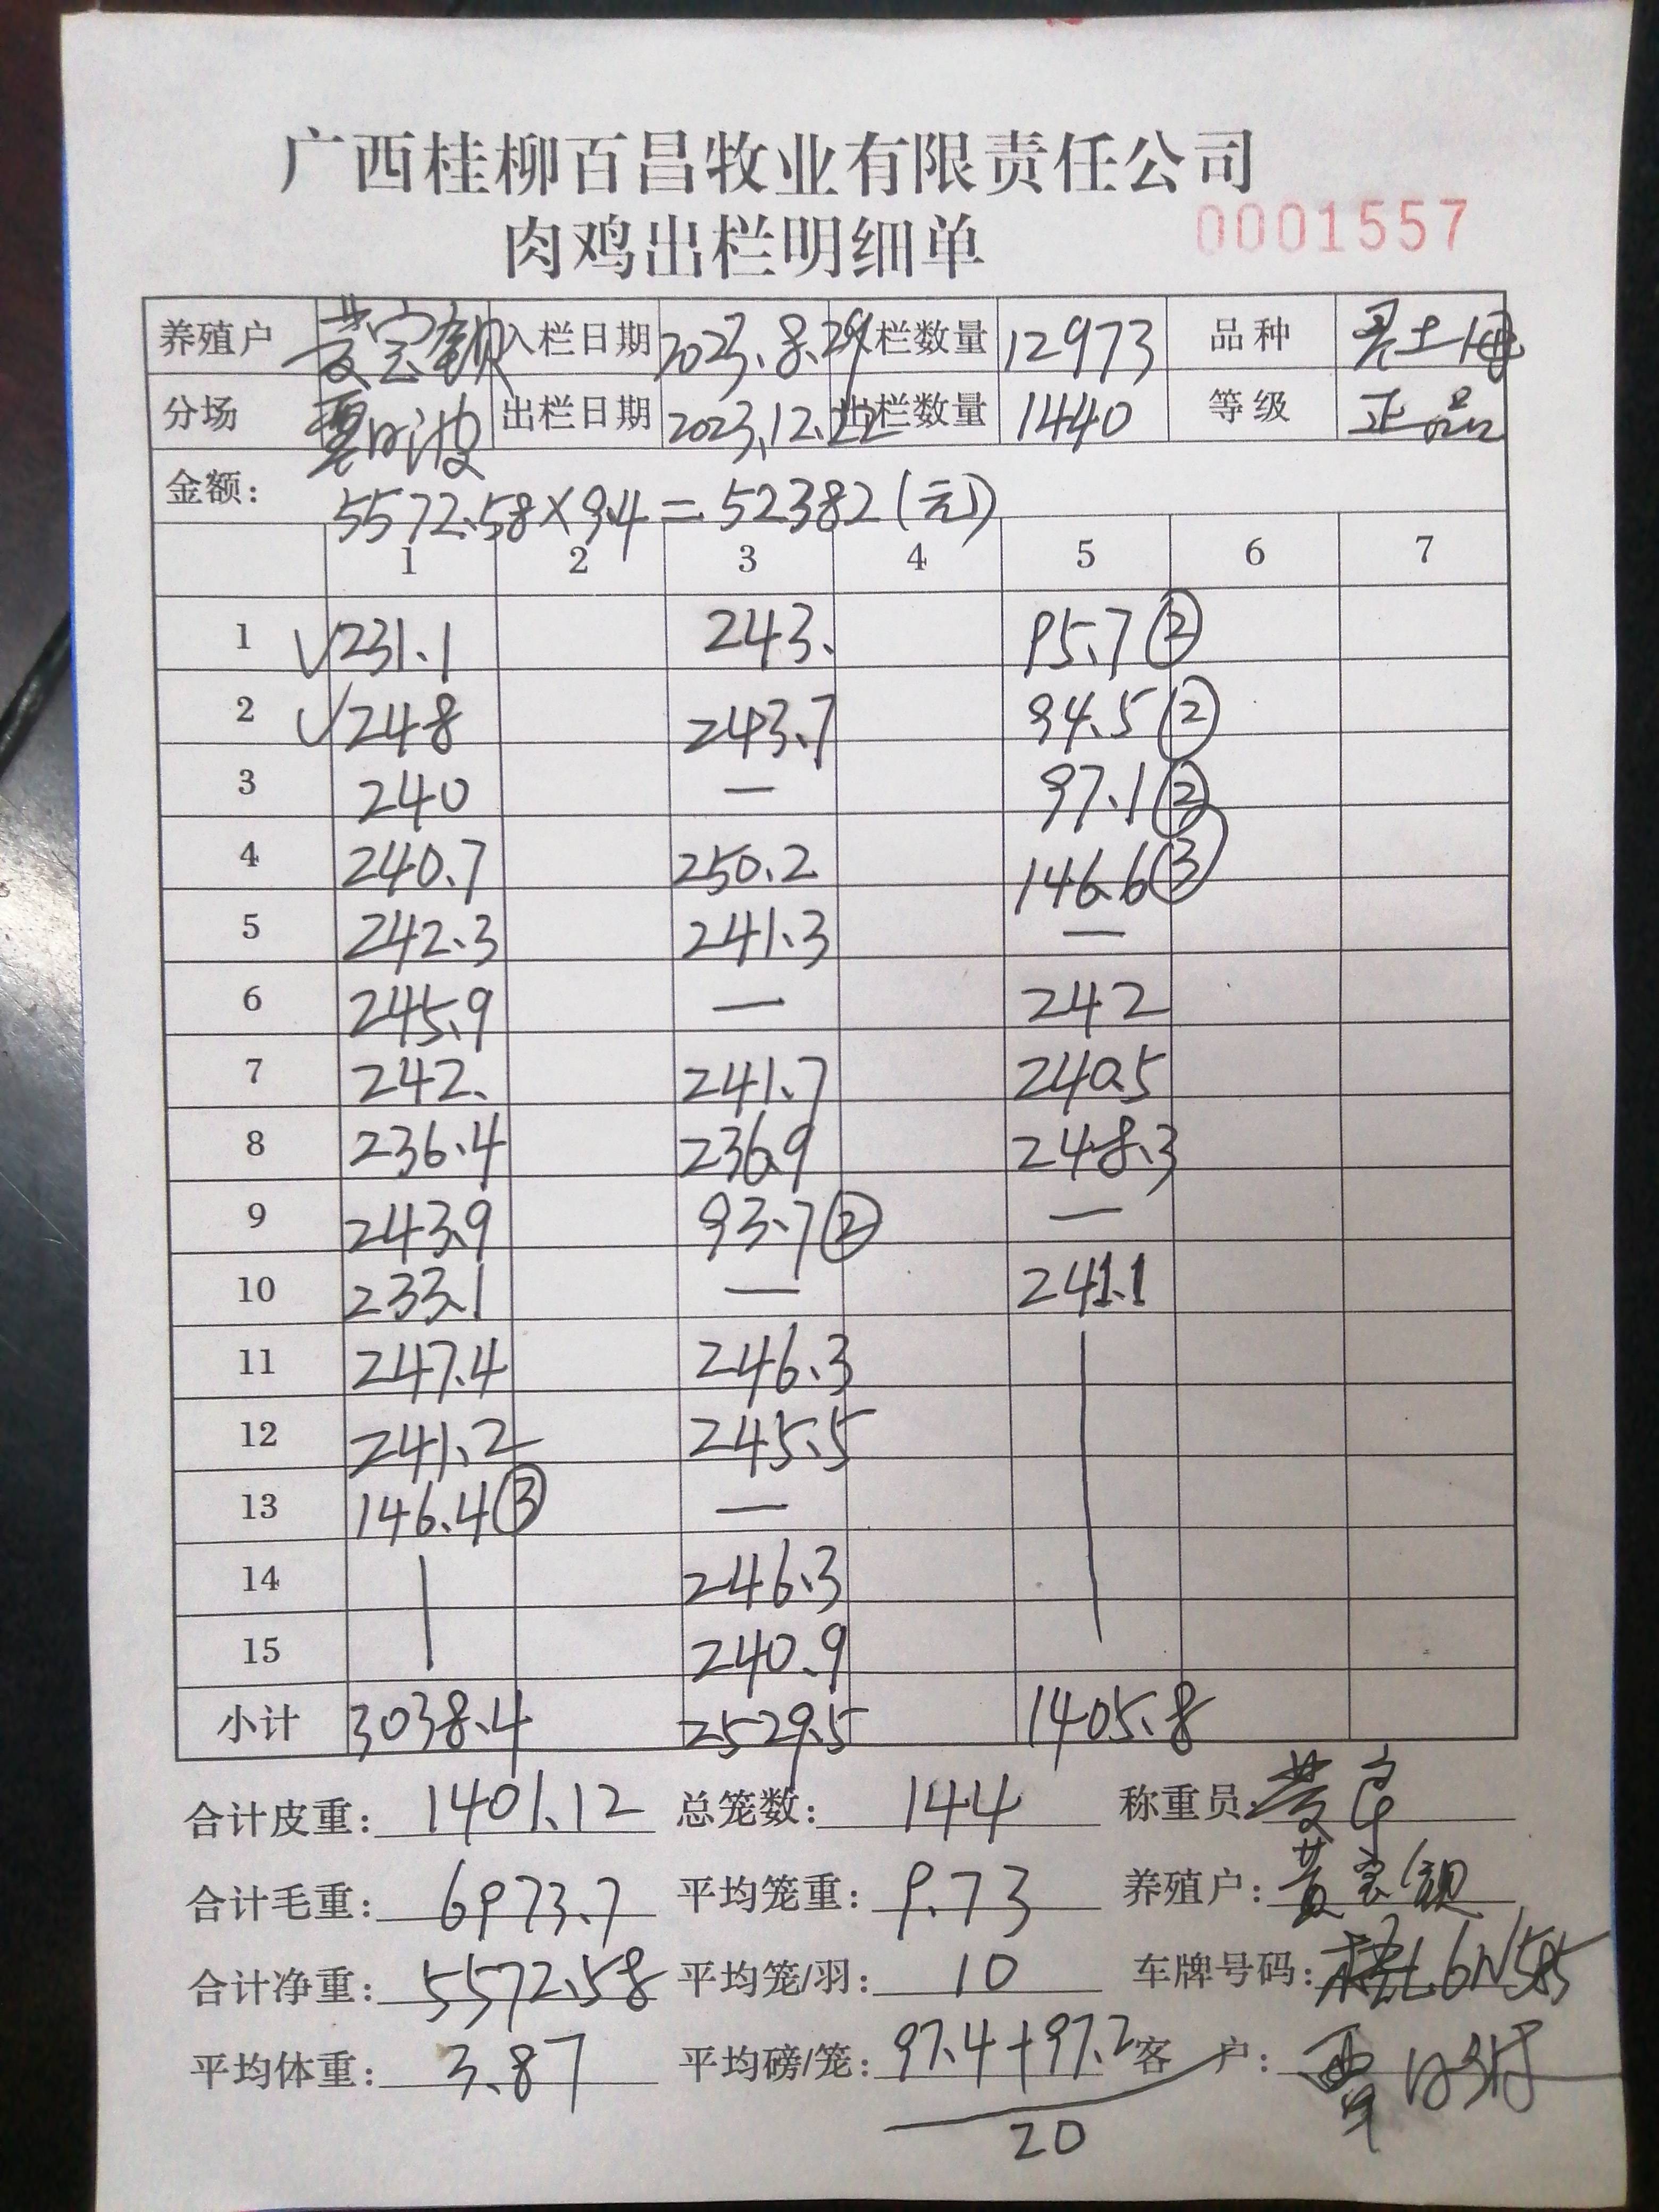 广西桂柳百昌牧业有限责任公司
肉鸡出栏明细单 0001557
养殖户 黄宝 入栏日期 2023.8.29 栏数量 12973 品种 土
分场 出栏日期 2023.12.22 出栏数量 1440 等级 正品
金额: 5572.58×9.4=52382(元)
1 2 3 4 5 6 7
1 √231.1 243. 95.7②
2 √248 243.7 94.5②
3 240 — 97.1②
4 240.7 250.2 146.6③
5 242.3 241.3 —
6 245.9 — 242
7 242. 241.7 240.5
8 236.4 236.9 248.3
9 243.9 93.7② —
10 233.1 — 241.1
11 247.4 246.3
12 241.2 245.5
13 146.4③ —
14 246.3
15 240.9
小计 3038.4 2529.5 1405.8
合计皮重: 1401.12 总笼数: 144 称重员: 黄
合计毛重: 6973.7 平均笼重: 9.73 养殖户: 黄宝
合计净重: 5572.58 平均笼/羽: 10 车牌号码:
平均体重: 3.87 平均磅/笼: 97.4+97.2 客户:
20